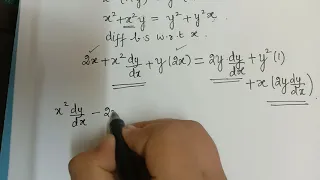 x² + x²y = y² + y²x
diff b.s w.r.t x.
2x + x² dy/dx + y (2x) = 2y dy/dx + y² (1)
+ x (2y dy/dx)
x² dy/dx - 2